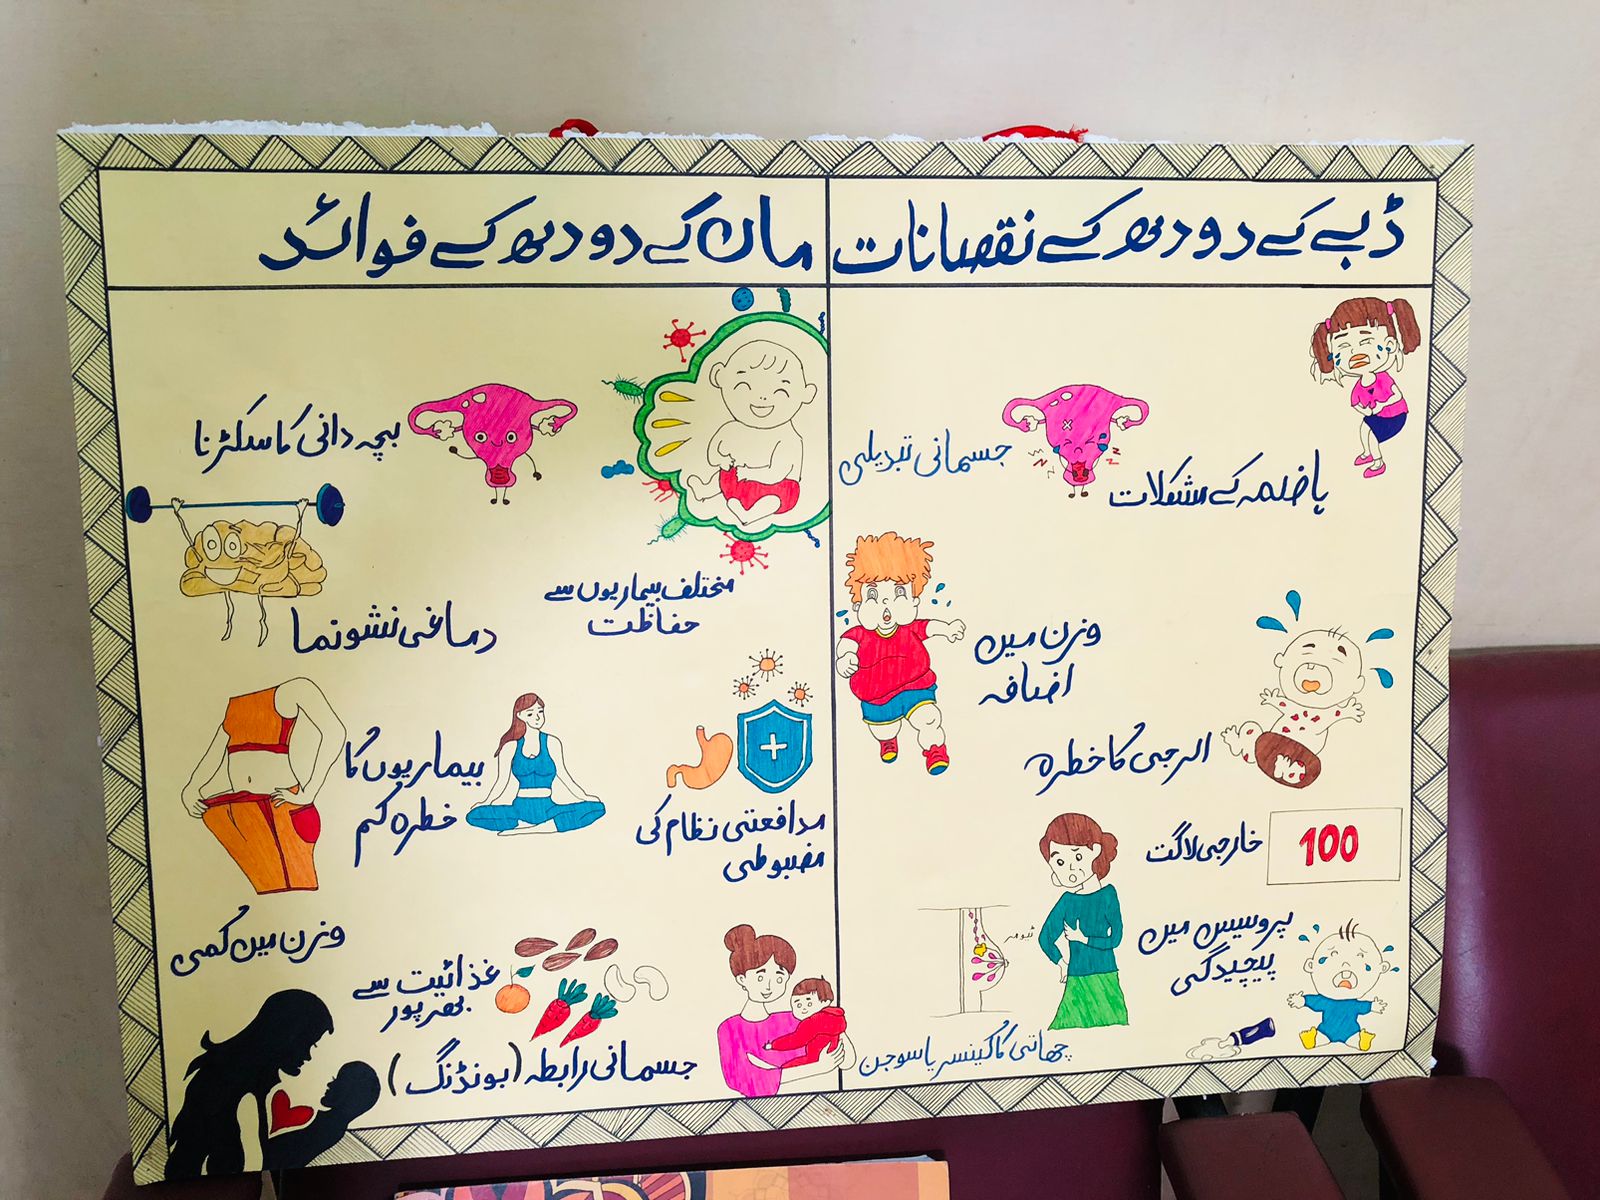 ڈبے کے دودھ کے نقصانات
ہاضمہ کے مشکلات
جسمانی تبدیلی
وزن میں
اضافہ
الرجی کا خطرہ
100
خارجی لاگت
پروسیس میں
پیچیدگی
ٹیومر
چھاتی کا کینسر یا سوجن
ماں کے دودھ کے فوائد
بچہ دانی کا سکڑنا
مختلف بیماریوں سے
حفاظت
دماغی نشوونما
مدافعتی نظام کی
مضبوطی
بیماریوں کا
خطرہ کم
وزن میں کمی
غذائیت سے
بھرپور
جسمانی رابطہ (بونڈنگ)